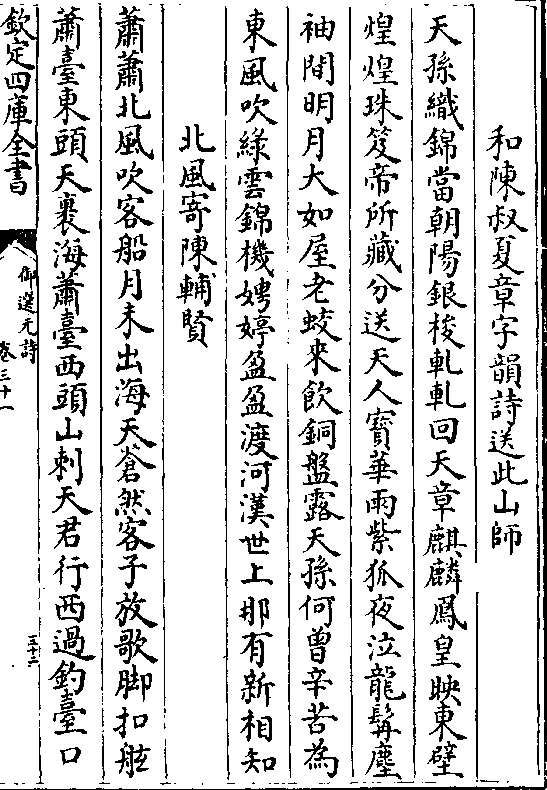 和陳叔夏章字韻詩送此山師
天孫織錦當朝陽銀梭軋軋回天章麒麟鳳皇映東壁
煌煌珠笈帝所藏分送天人寶華雨紫狐夜泣龍髯塵
袖間明月大如屋老蛟來飲銅盤露天孫何曽辛苦為
東風吹綠雲錦機娉婷盈盈渡河漢世上那有新相知
北風寄陳輔賢
蕭蕭北風吹客船月未出海天蒼然客子放歌脚扣舷
蕭臺東頭天裹海蕭臺西頭山刺天君行西過釣臺口
欽定四庫全書
御選元詩
卷三十一
三十二